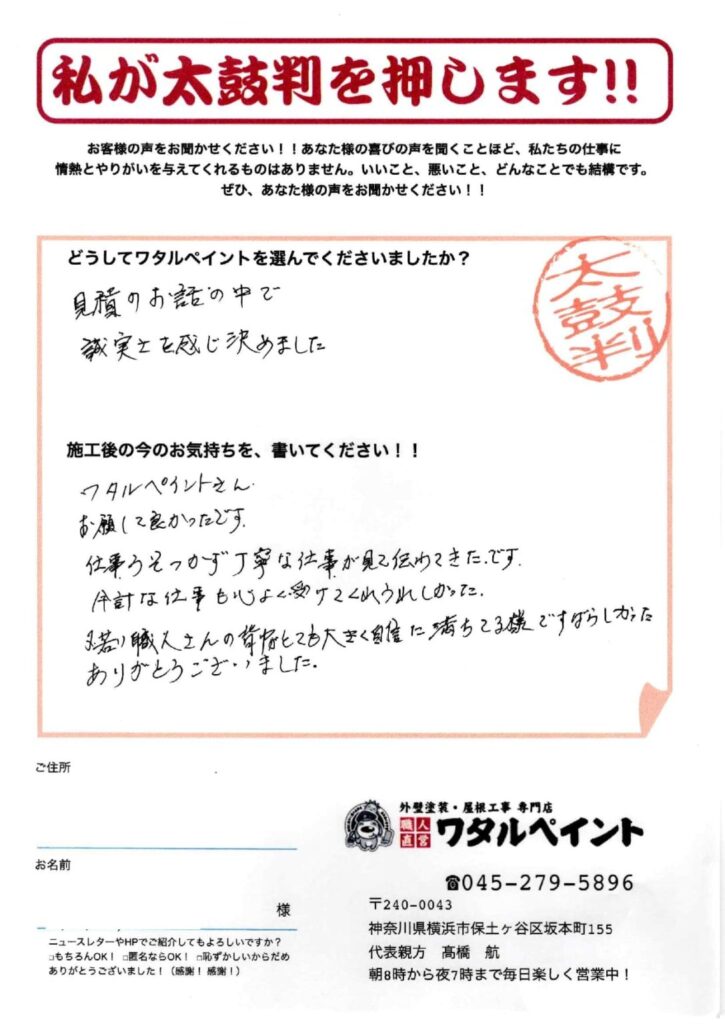 私が太鼓判を押します!!
お客様の声をお聞かせください！！あなた様の喜びの声を聞くことほど、私たちの仕事に
情熱とやりがいを与えてくれるものはありません。いいこと、悪いこと、どんなことでも結構です。
ぜひ、あなた様の声をお聞かせください！！
どうしてワタルペイントを選んでくださいましたか？
太鼓判
見積のお話の中で
誠実さを感じ決めました
施工後の今のお気持ちを、書いてください！！
ワタルペイントさん
お願して良かったです.
仕事うそつかず丁寧な仕事が見て伝わてきた.です.
余計な仕事も心よく受けてくれうれしかった.
若い職人さんの背中とても大きく自信に満ちてる様ですばらしかった
ありがとうございました.
ご住所
外壁塗装・屋根工事 専門店
職人直営 ワタルペイント
お名前
様
☎045-279-5896
〒240-0043
神奈川県横浜市保土ヶ谷区坂本町155
代表親方 髙橋 航
朝8時から夜7時まで毎日楽しく営業中！
ニュースレターやHPでご紹介してもよろしいですか？
□もちろんOK！ □匿名ならOK！ □恥ずかしいからだめ
ありがとうございました！（感謝！感謝！）